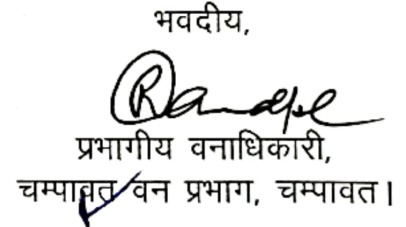 भवदीय,
प्रभागीय वनाधिकारी,
चम्पावत वन प्रभाग, चम्पावत।